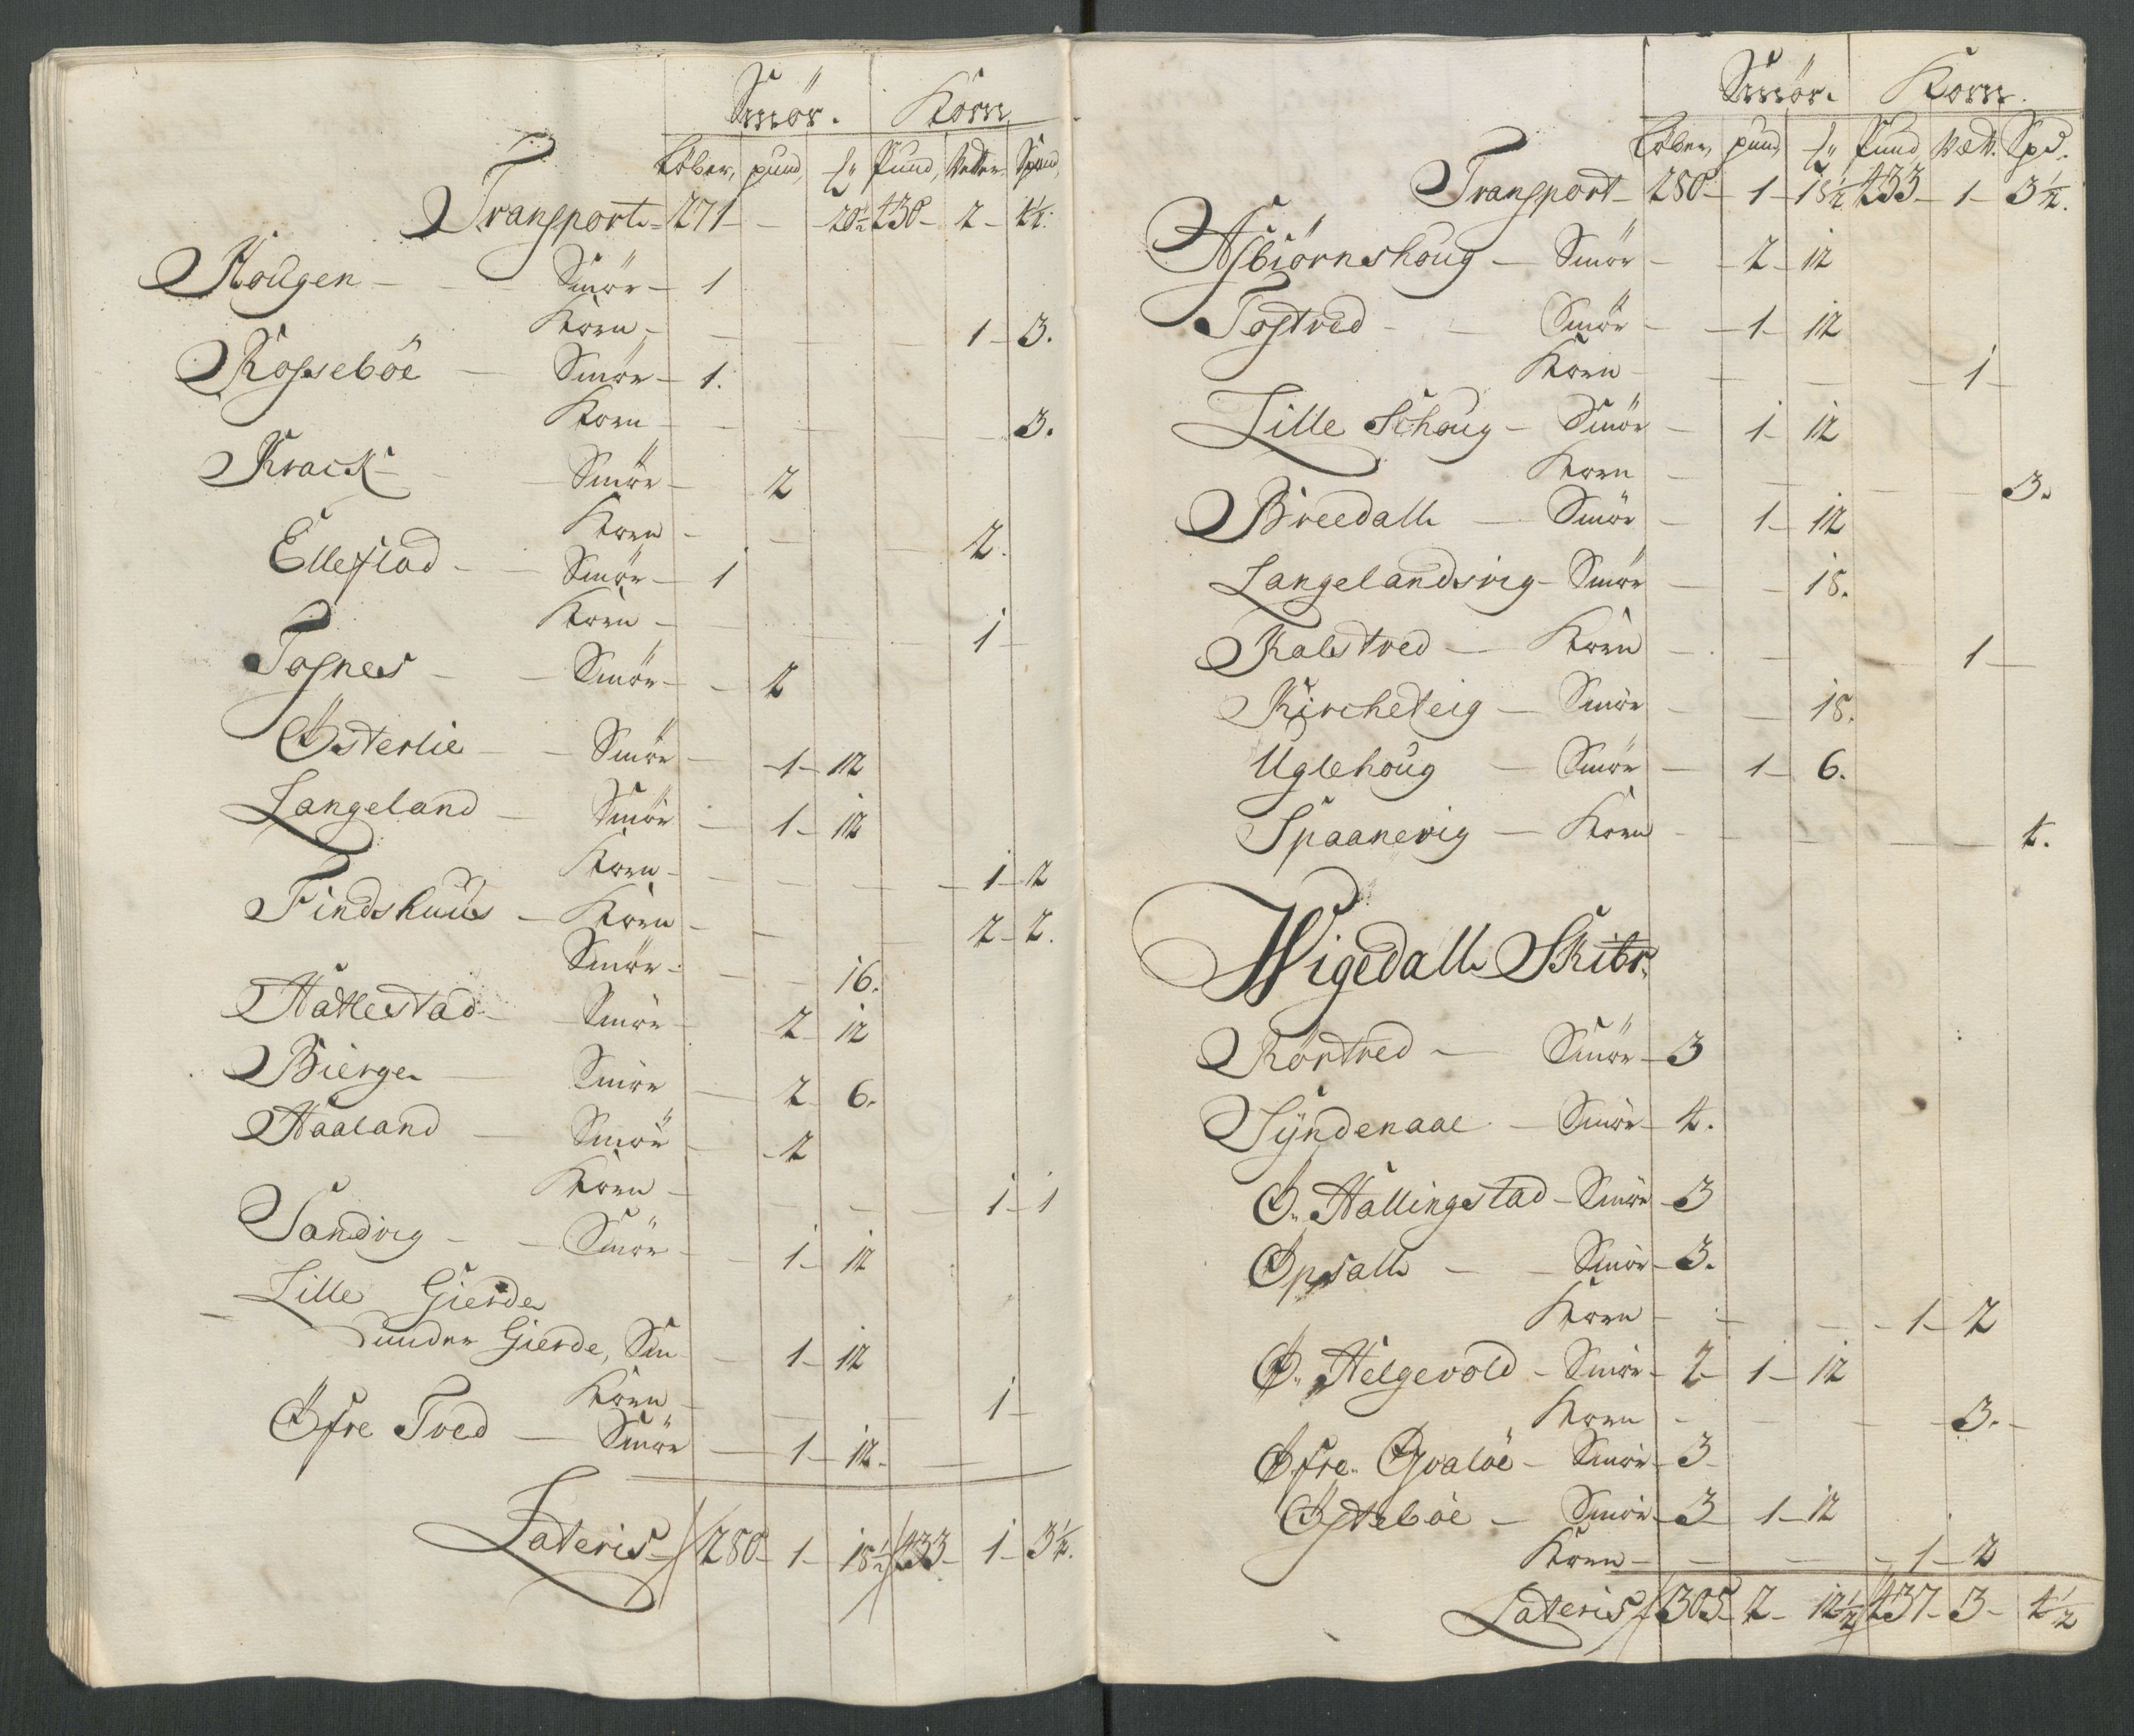 Smör. Korn
Löber, pund, ℔ Pund, Vetter, Spand,
Transport - 271 - - - 20½ 430 - 2 - 4½.
Hougen - - Smör - 1
Korn - - - - 1 - 3.
Rosseböe - Smör - 1.
Korn - - - - - 3.
Krack - - Smör - 2
Korn - - - 2.
Ellefstad - - Smör - 1
Korn - - - - 1 -
Fosnes - - Smör - - 2
Østerlie - - Smör - - 1 - 12
Langeland - Smör - 1 - 12
Korn - - - - - 1 - 2
Findshuus - Korn - - - 2 - 2.
Smör - - - 16.
Hatlestad - - Smör - 2 - 12
Bierge - Smör - 2 6.
Haaland - Smör - - 2
Korn - - - - 1 - 1
Sandvig - - Smör - - 1 - 12
Lille Gierde
under Gierde, Sm - - 1 - 12
Korn - - - 1 -
Öfre Tved - Smör - 1 - 12 - -
Lateris - 280 - 1 - 18½ 433 - 1 - 3½.
Smör. Korn.
Löber, pund, ℔ Pund, Vett. Spd.
Transport - 280 - 1 - 18½ 433 - 1 - 3½.
Asbiörnshoug - Smör - - 2 - 12
Tostved - - Smör - - 1 - 12
Korn - - - - 1 -
Lille Schoug - Smör - 1 - 12
Korn - - - - - 3.
Breedall - Smör - 1 - 12
Langelandsvig - Smör - - 18.
Kalstved - Korn - - - - 1 -
Kircheteig - Smör - - 18.
Uglehoug - Smör - 1 - 6.
Spaanevig - Korn - - - - - 4.
Wigedall Skibr.
Rörtved - Smör - 3
Syndenaae - Smör - 4.
Ö. Hallingstad - Smör - 3
Opsall - - Smör - 3.
Korn - - - - 1 - 2
Ö. Helgevold - Smör - 2 - 1 - 12
Korn - - - - 3. -
Öfre Qvaløe - Smör - 3 -
Östeböe - Smör - 3 1 - 12
Korn - - - - 1 - 2
Lateris 305 - 2 - 12½ 437 - 3 - 4½